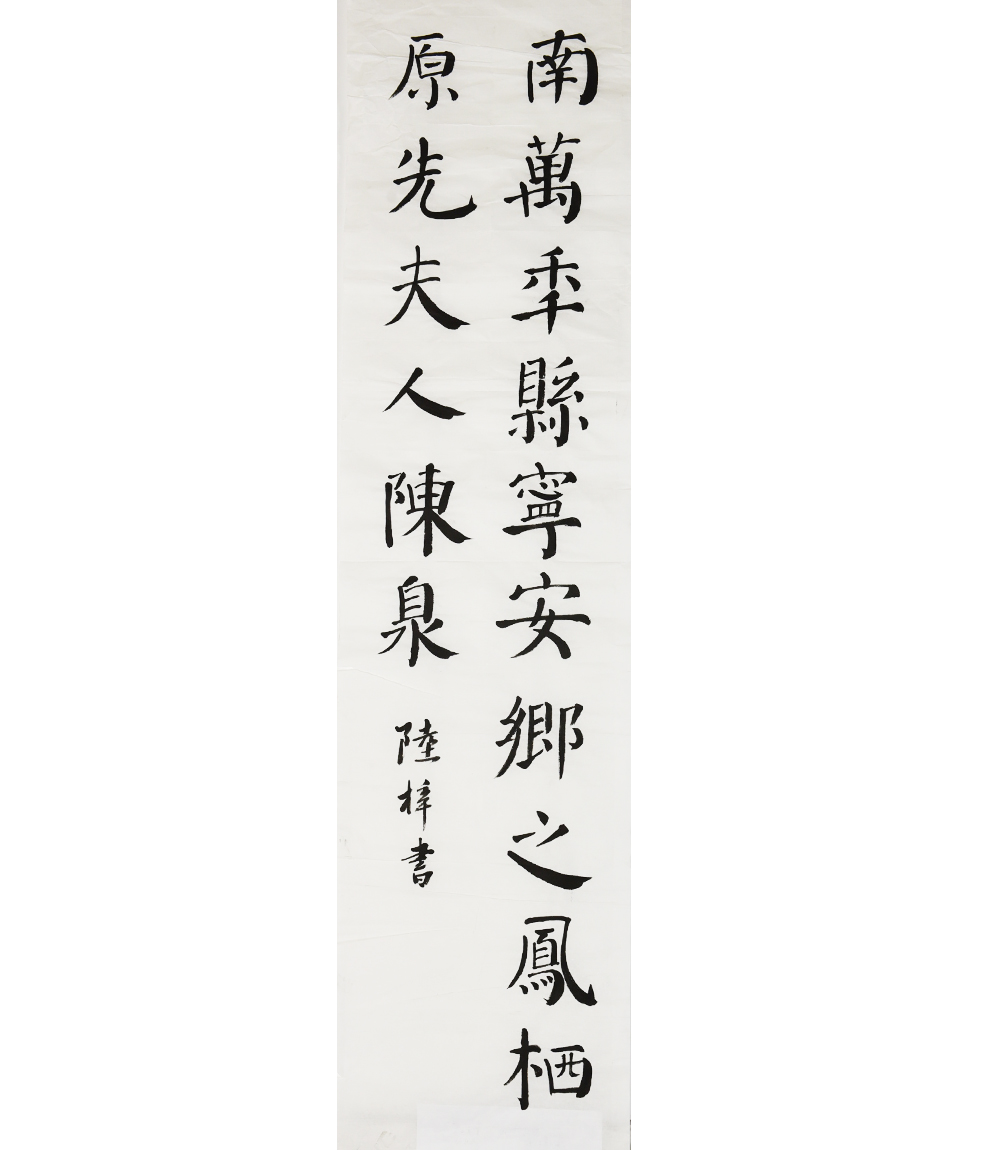 南萬秊縣寧安鄉之鳳栖
原先夫人陳泉
陸梓書